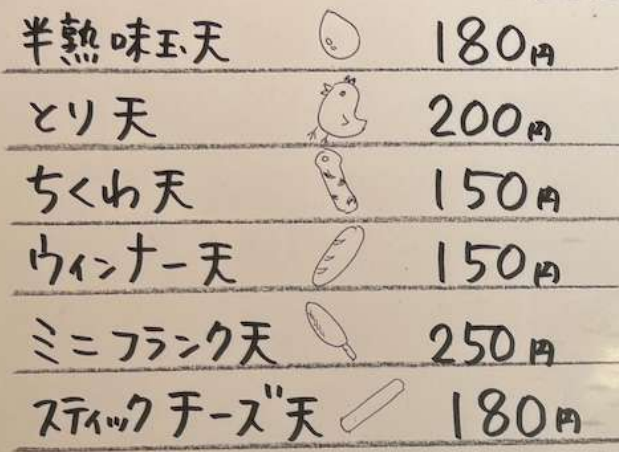 半熟味玉天 180円
とり天 200円
ちくわ天 150円
ウィンナー天 150円
ミニフランク天 250円
スティックチーズ天 180円